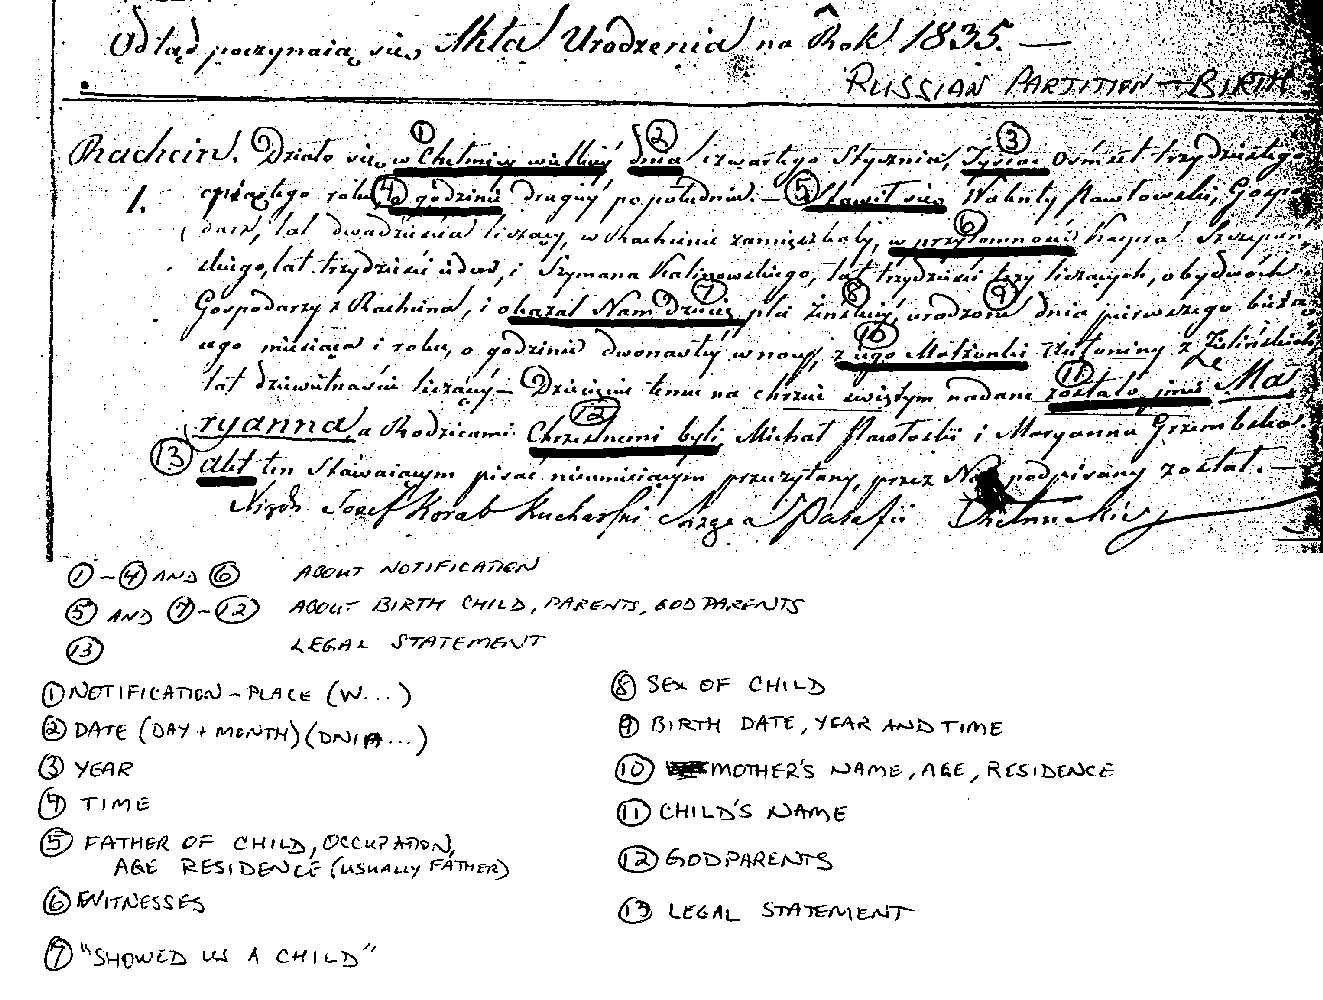 Odtąd poczynaią się Akta Urodzenia na Rok 1835. —
RUSSIAN PARTITION — BIRTH
Rachcin. Działo się w Chełmicy wielkiy dnia czwartego Stycznia, Tysiąc Ośmset trzydziestego
1. piątego roku o godzinie drugiy po południu. — Stawił się Walenty Pawłowski, Gospo
darz, lat dwadzieścia liczący, w Rachcinie zamięszkały, w przytomności Kacpra Szczepań
skiego, lat trzydzieści i Szymana Kalinowskiego, lat trzydzieści trzy liczących, obydwóch
Gospodarzy z Rachcina, i okazał Nam Dziecię płci żeńskiy, urodzone dnia pierwszego bieżą
cego miesiąca i roku, o godzinie dwonastey w nocy, z iego Małżonki Antoniny z Zielińskich
lat dziewiętnaście liczący — Dziecięciu temu na chrzcie świętym nadane zostało imie Ma
ryanna, a Rodzicami Chrzestnemi byli, Michał Pawłoski i Maryanna Grzembska.
Akt ten Stawaiącym pisać nieumieiącym przeczytany, przez Nas podpisany został. —
Xiądz Józef Korab Kucharski Parafii
① – ④ AND ⑥ ABOUT NOTIFICATION
⑤ AND ⑦ – ⑫ ABOUT BIRTH CHILD, PARENTS, GODPARENTS
⑬ LEGAL STATEMENT
① NOTIFICATION – PLACE (W...)
② DATE (DAY + MONTH) (DNIA...)
③ YEAR
④ TIME
⑤ FATHER OF CHILD, OCCUPATION,
AGE RESIDENCE (USUALLY FATHER)
⑥ WITNESSES
⑦ "SHOWED US A CHILD"
⑧ SEX OF CHILD
⑨ BIRTH DATE, YEAR AND TIME
⑩ MOTHER'S NAME, AGE, RESIDENCE
⑪ CHILD'S NAME
⑫ GODPARENTS
⑬ LEGAL STATEMENT